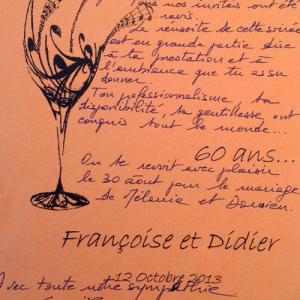 nos invités ont été
ravis.
La réussite de cette soirée
est en grande partie due
à ta prestation et à
l'ambiance que tu as su
donner.
Ton professionnalisme ta
disponibilité, ta gentillesse ont
conquis tout le monde...
60 ans...
On te revoit avec plaisir
le 30 août pour le mariage
de Mélanie et
Françoise et Didier
12 Octobre 2013
Avec toute notre sympathie